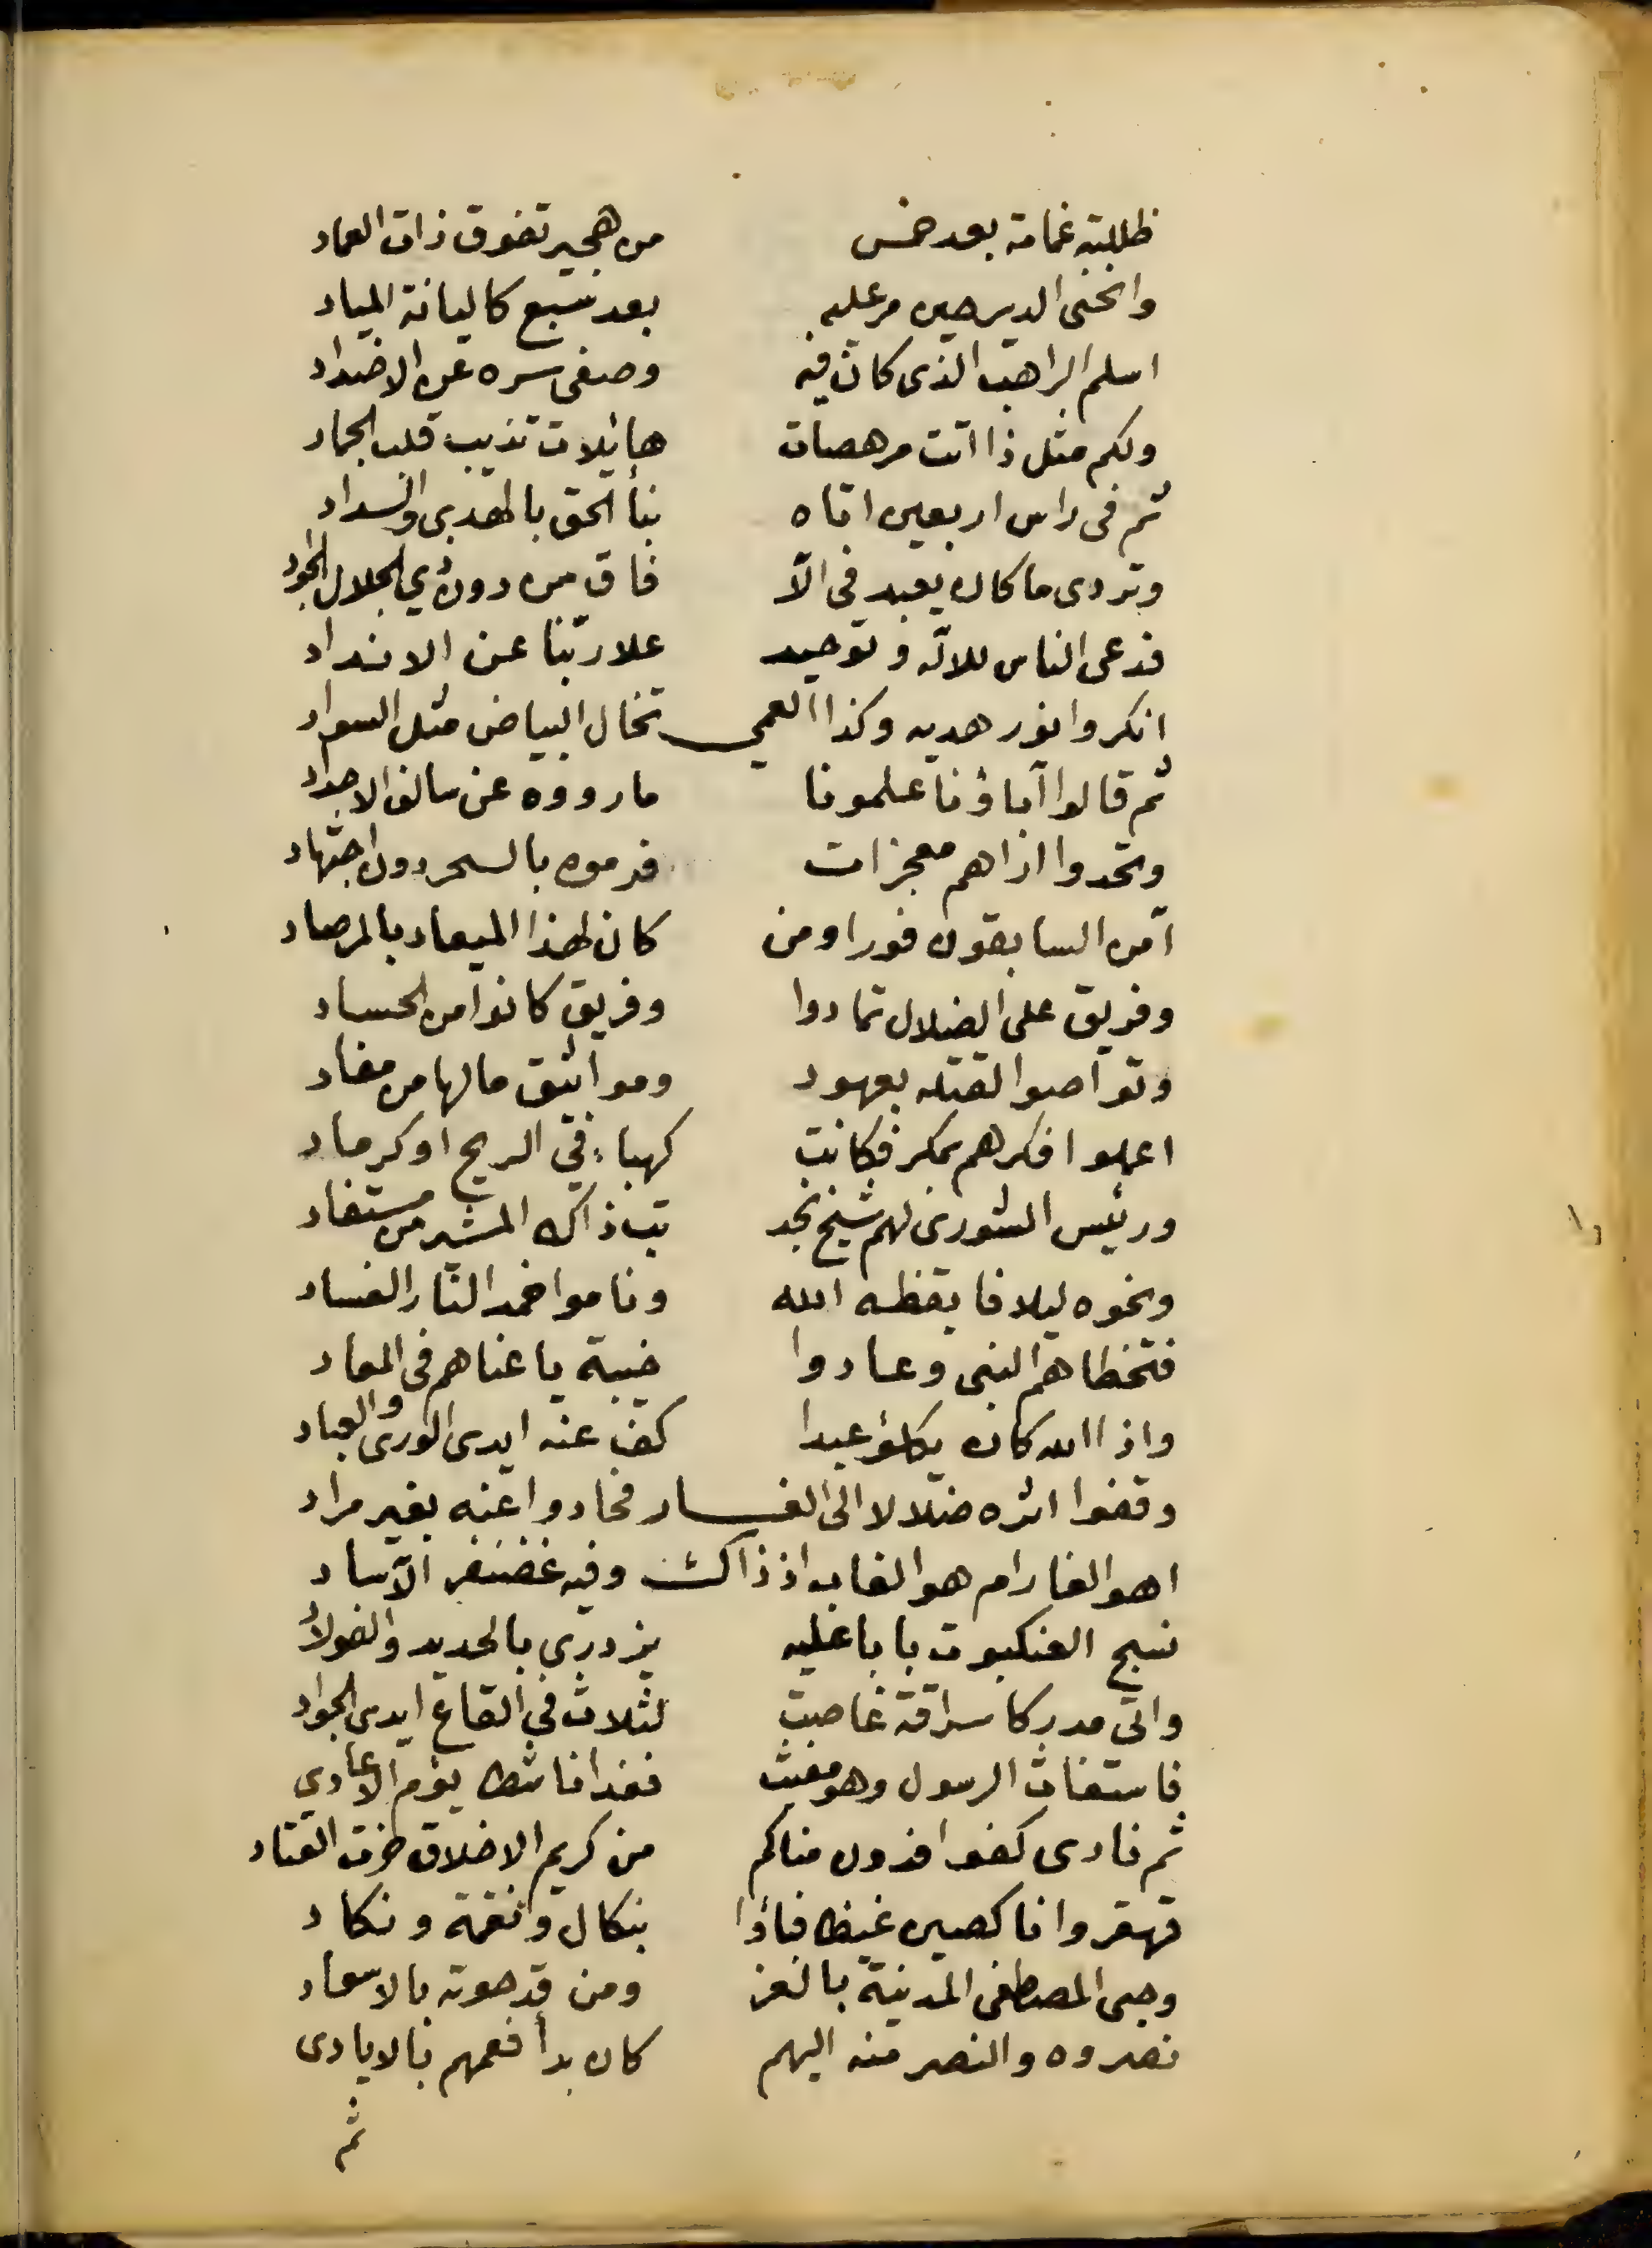 ظللته غمامة بعد خمس من هجير تفوق ذات العماد
وانحنى الدير حين مر عليه بعد سبع كاليانة المياد
اسلم الراهب الذى كان فيه وصفى سره عن الاضداد
ولكم مثل ذا اتت مرهصات هائلات تذيب قلب الجماد
ثم فى راس اربعين اتاه نبأ الحق بالهدى والسداد
وتردى ما كان يعبد فى الآ فاق من دون ذي الجلال الجواد
فدعى الناس للاله وتوحيد علا ربّنا عن الانداد
انكروا نور هديه وكذا العمي تخال البياض مثل السواد
ثم قالوا آباؤنا علمونا ما رووه عن سالف الاجداد
وتحدوا اذ اهم معجزات فرموه بالسحر دون اجتهاد
آمن السابقون فورا ومن كان لهذا الميعاد بالمرصاد
وفريق على الضلال تمادوا وفريق كانوا من الحساد
وتواصوا لقتله بعهود ومواثيق ما لها من مفاد
اعملوا فكرهم بمكر فكانت كهباء في الريح او كرماد
ورئيس الشورى لهم شيخ نجد تب ذاك المشير من مستفاد
ونحوه ليلا فايقظه الله وناموا خمد النار الفساد
فتخطاهم النبى وعادوا خيبة يا عناهم فى المعاد
واذا الله كان يكلؤ عبدا كف عنه ايدى الورى والعباد
وقفوا اثره ضلالا الى الغار فحادوا عنه بغير مراد
اهو الغار ام هو الغاب اذ ذاك وفيه غضنفر الآساد
نسج العنكبوت بابا عليه يزدري بالحديد والفولاذ
واتى مدركا سراقة غاصت لثلاث في القاع ايدى الجواد
فاستغاث الرسول وهو مغيث فغدا ناشطا يؤم الاعادي
ثم نادى كفوا فدون مناكم من كريم الاخلاق خرت القتاد
قهقروا ناكصين غيظا فباؤا بنكال ونقمة ونكاد
وحبى المصطفى المدينة بالعز ومن قد حوته بالاسعاد
نصروه والنصر منه اليهم كان بدأ فعمهم بالايادى
ثم